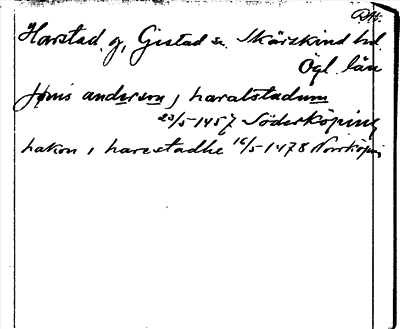 DMS.
Harstad, g, Gistad sn Skärskind hd.
Ögl. län
Jønis anderson, i haralstadum
23/5-1457 Söderköping
hakon i harestadhe 16/5-1478 Norrköping